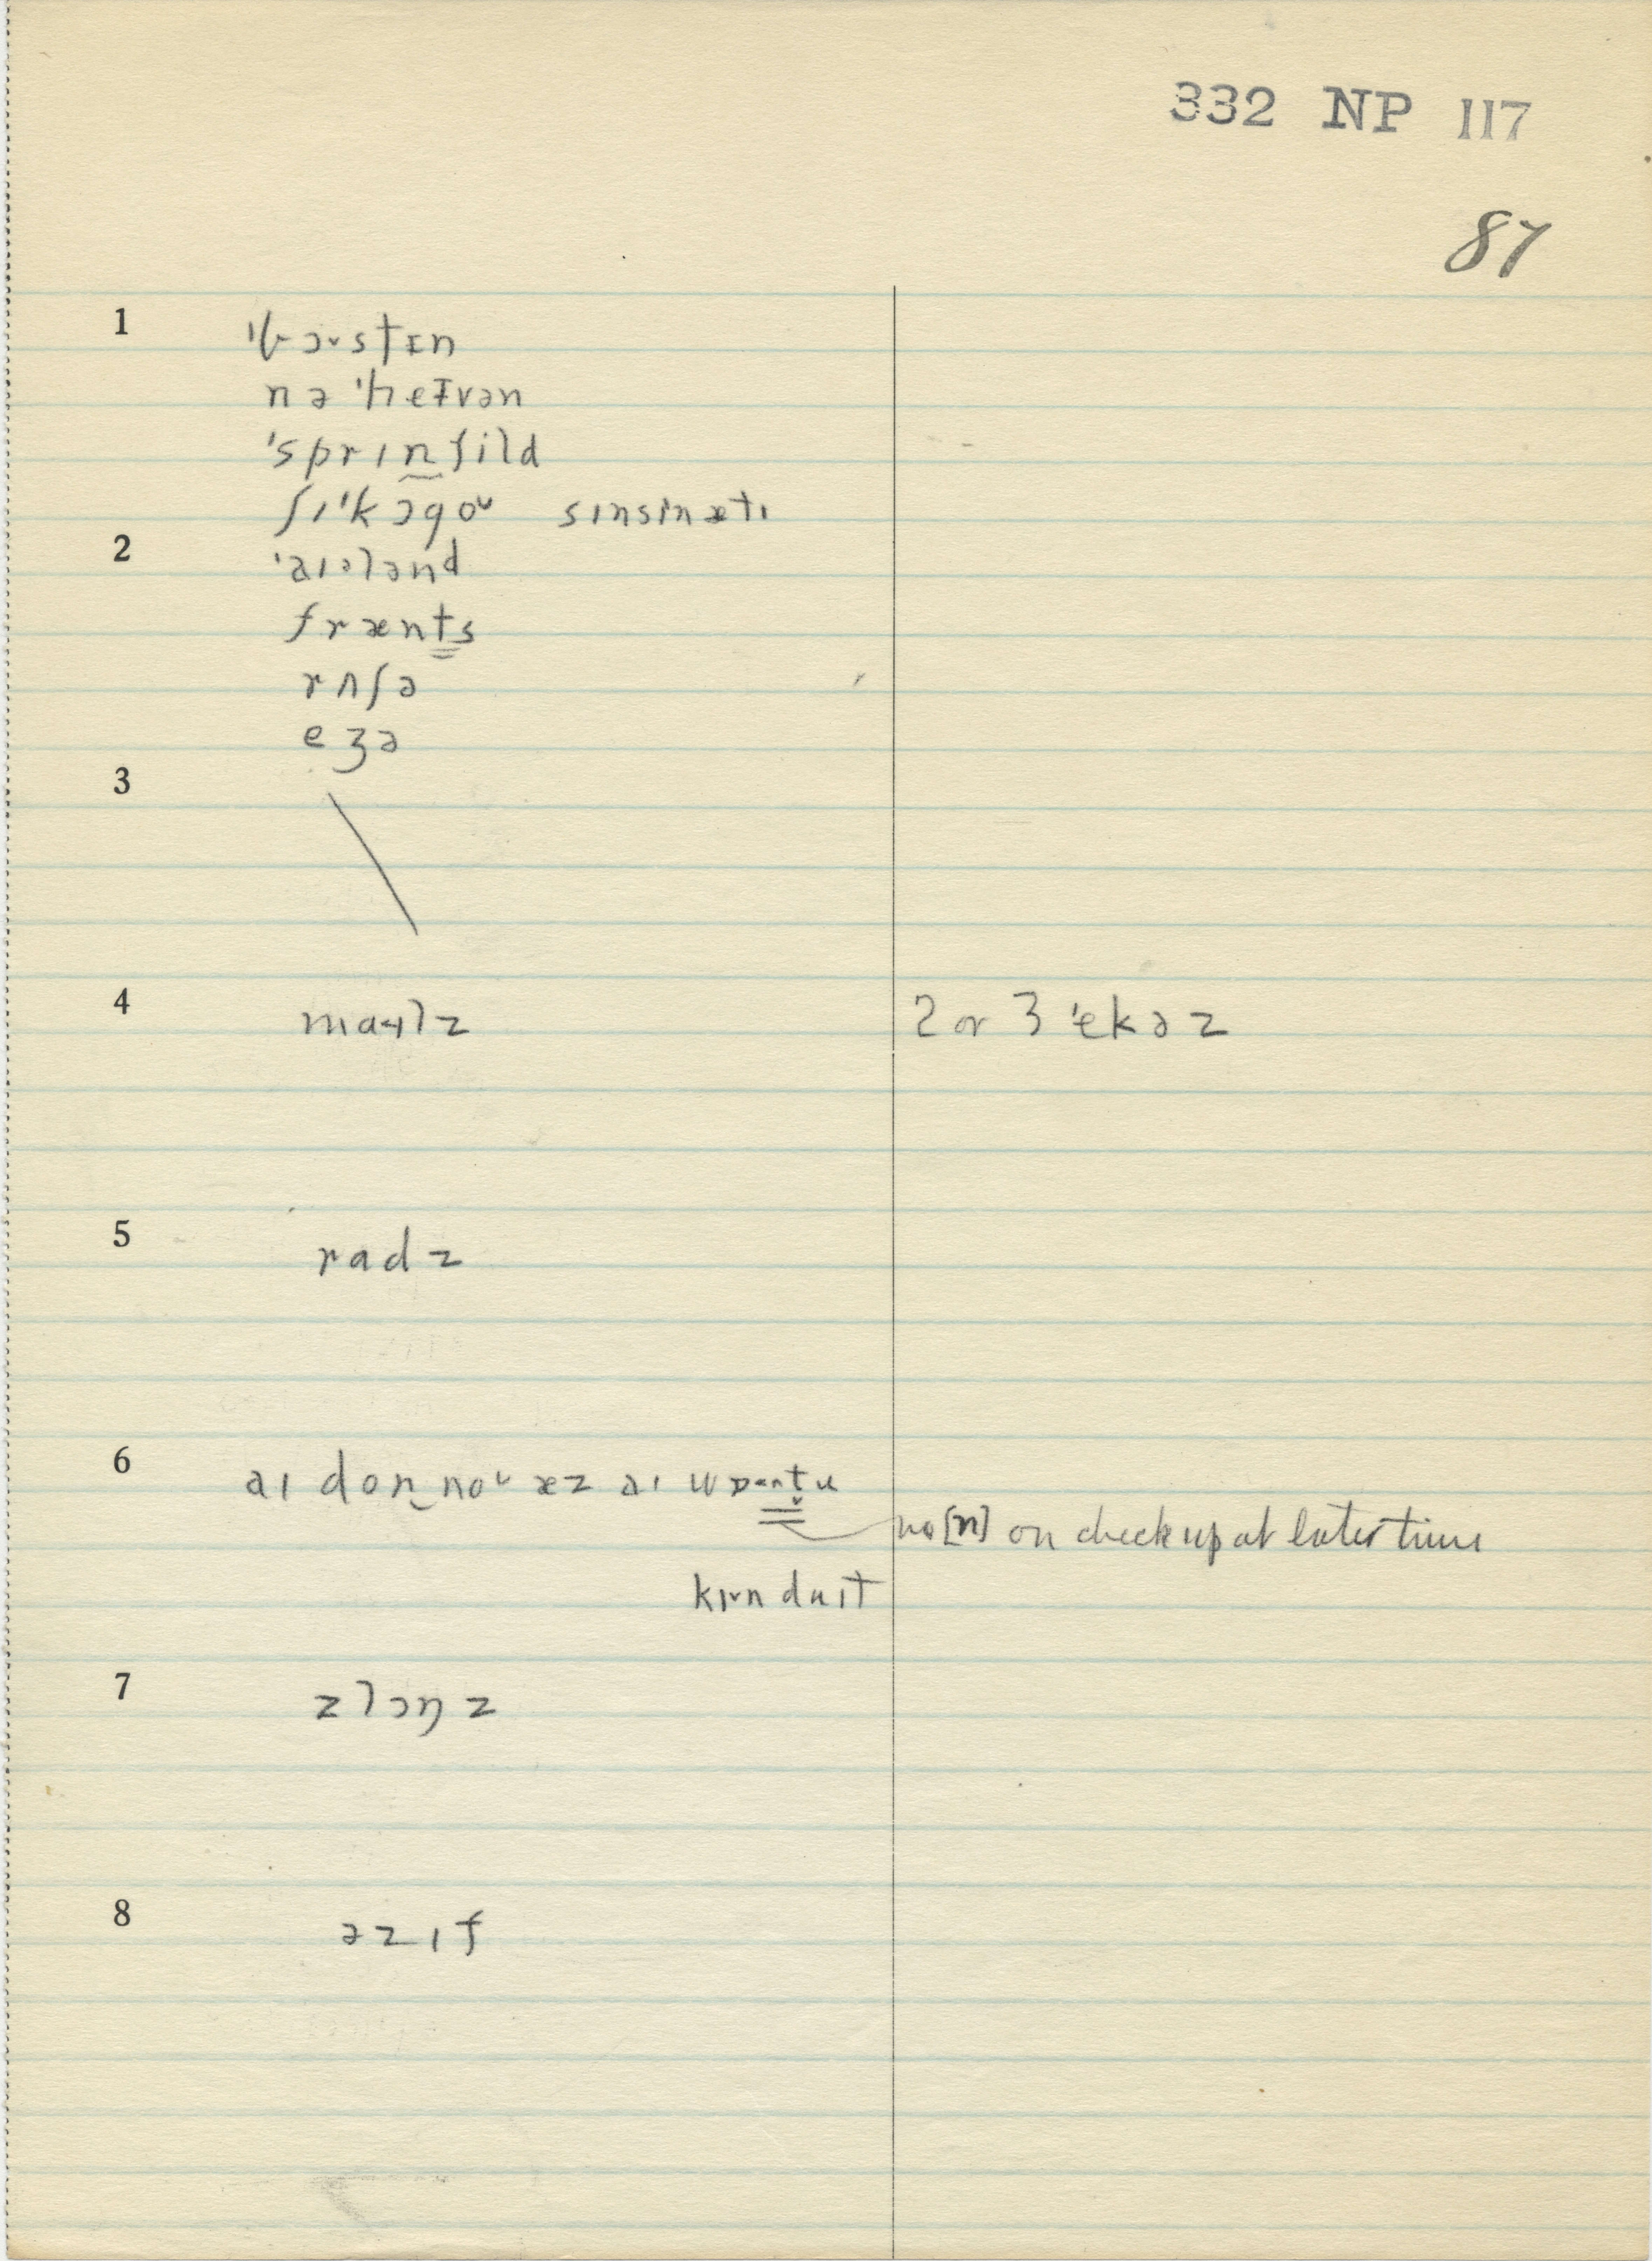 332 NP 117
87
1 'bɔᵛstɪn
nə 'heɪvən
'sprɪn̰fild
ʃɪ'kɔgoᵛ sɪnsɪnætɪ
2 'aɪələnd
frænts
rʌʃə
eʒə
3
4 maɪlz 2 or 3 'ekəz
5 radz
6 aɪ don noᵛ əz aɪ wɒntu
no [n] on check up at later time
duɪt
7 zlɔŋz
8 əzɪf